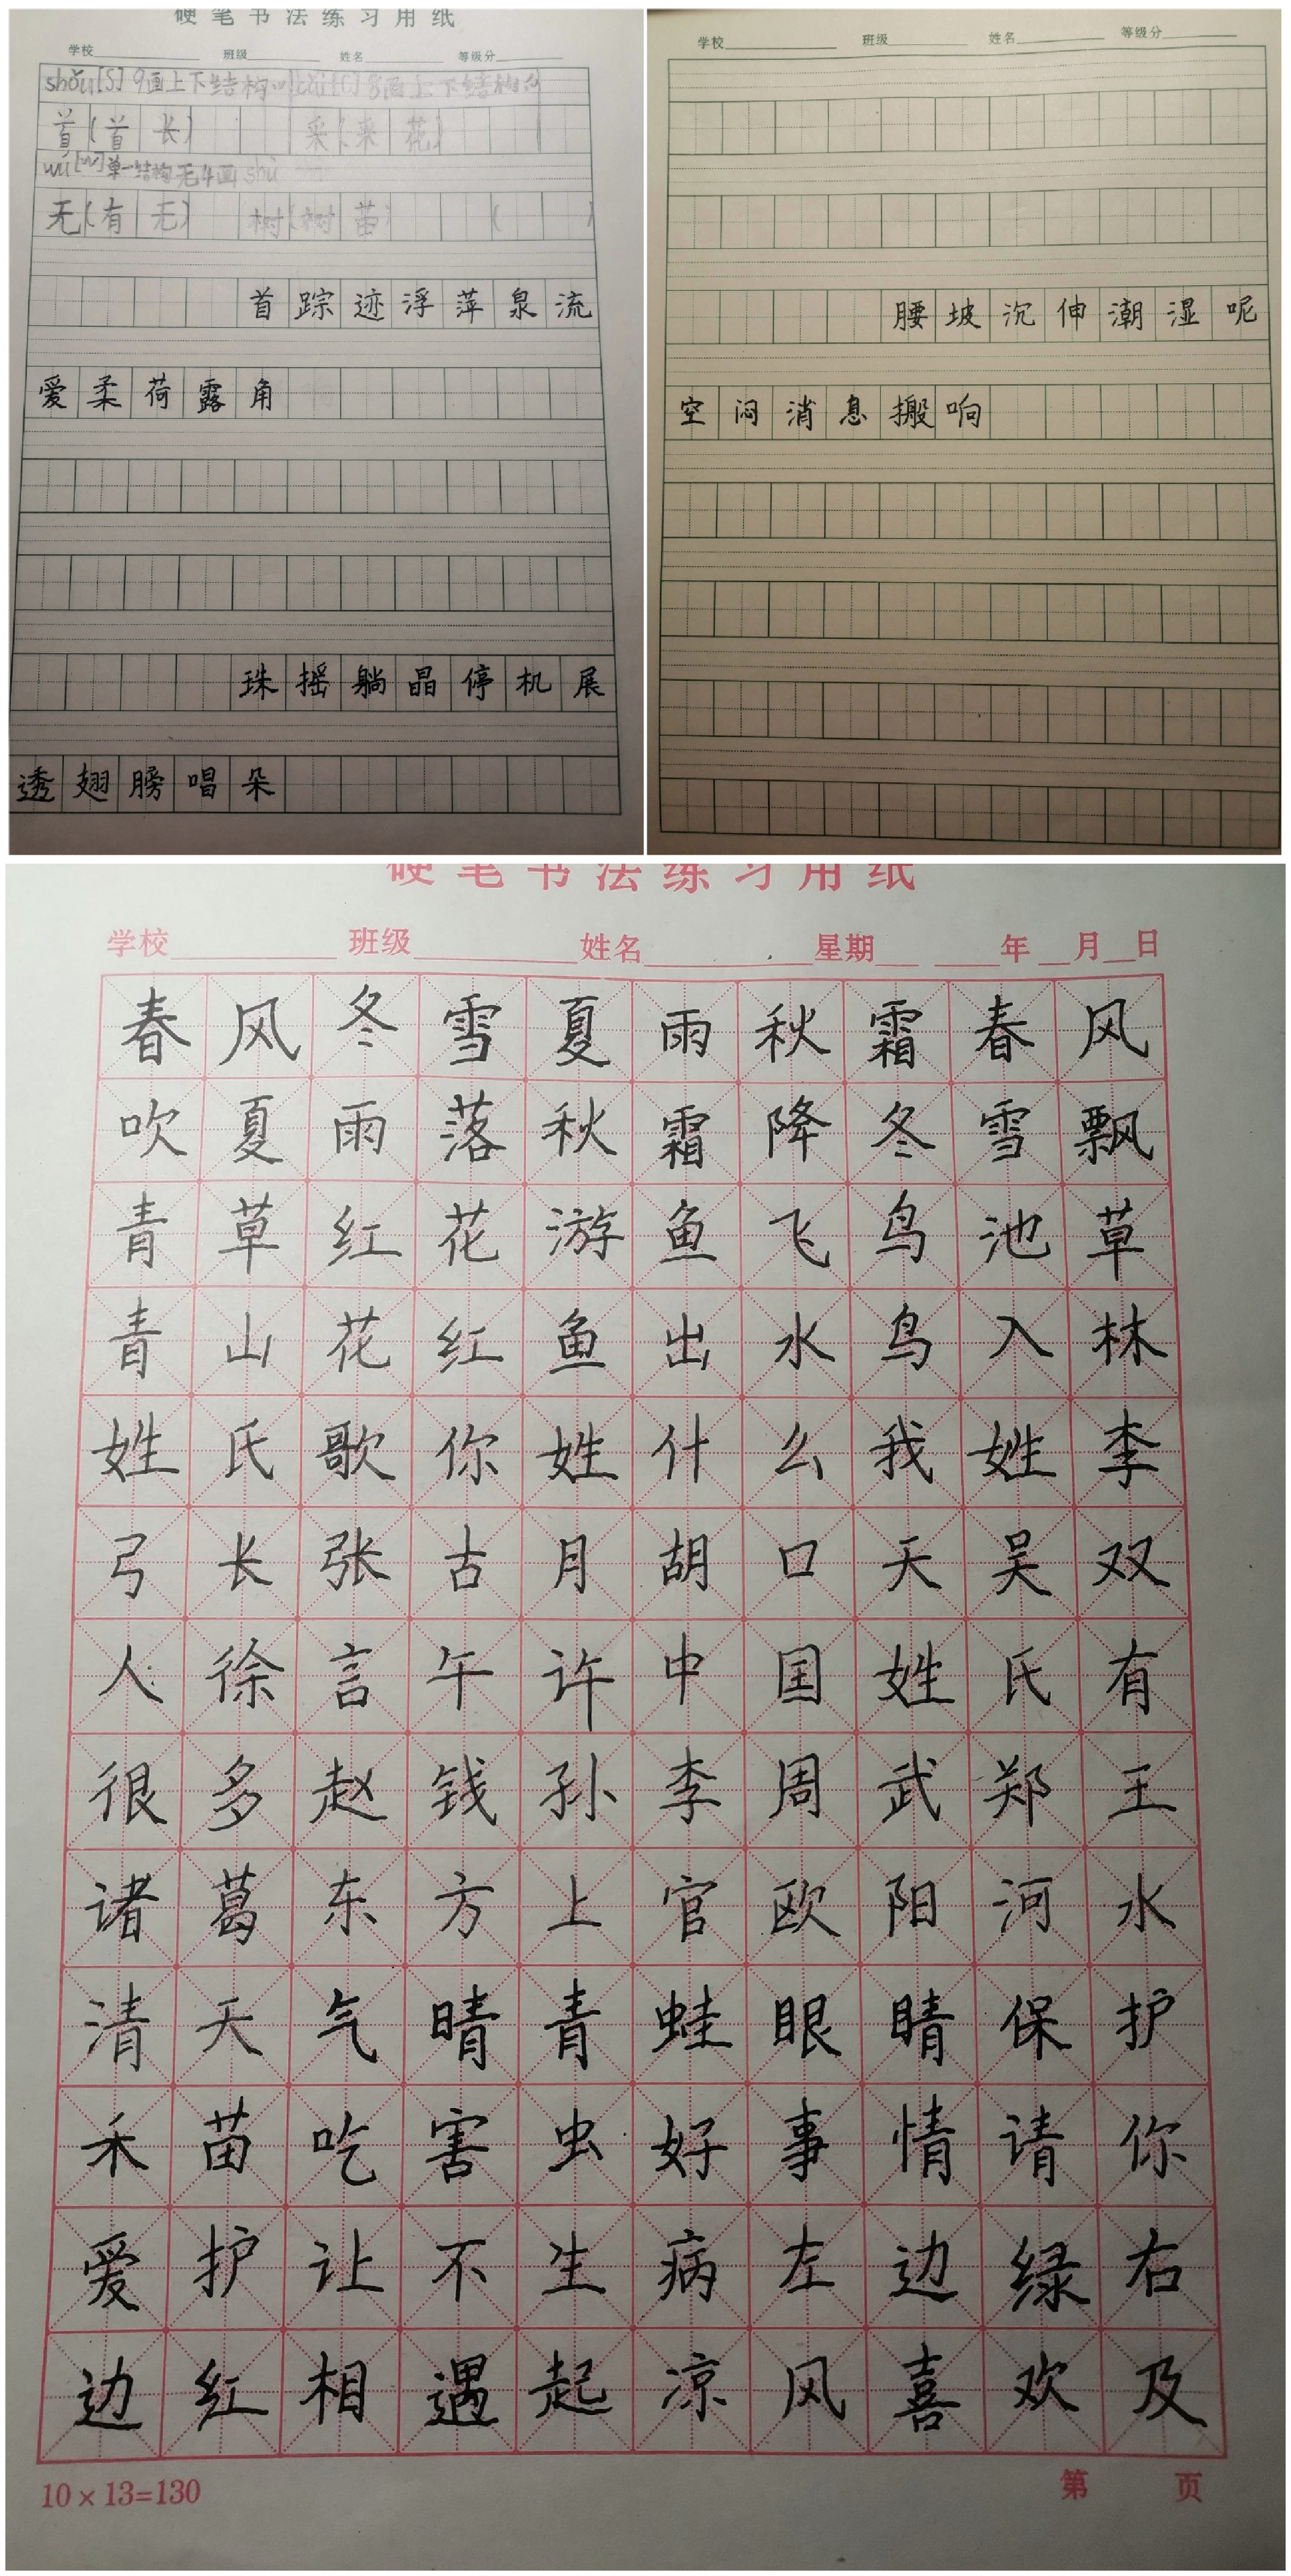 硬笔书法练习用纸
学校 班级 姓名 等级分
shǒu[S] 9画上下结构 8画上下结构
首(首长) 采(采花)
wú[W]单一结构无4画 shù
无(有无) 树(树苗) ( )
首踪迹浮萍泉流
爱柔荷露角
珠摇躺晶停机展
透翅膀唱朵
学校 班级 姓名 等级分
腰坡沉伸潮湿呢
空闷消息搬响
硬笔书法练习用纸
学校 班级 姓名 星期 年 月 日
春风冬雪夏雨秋霜春风
吹夏雨落秋霜降冬雪飘
青草红花游鱼飞鸟池草
青山花红鱼出水鸟入林
姓氏歌你姓什么我姓李
弓长张古月胡口天吴双
人徐言午许中国姓氏有
很多赵钱孙李周武郑王
诸葛东方上官欧阳河水
清天气晴青蛙眼睛保护
禾苗吃害虫好事情请你
爱护让不生病左边绿右
边红相遇起凉风喜欢及
10×13=130 第 页